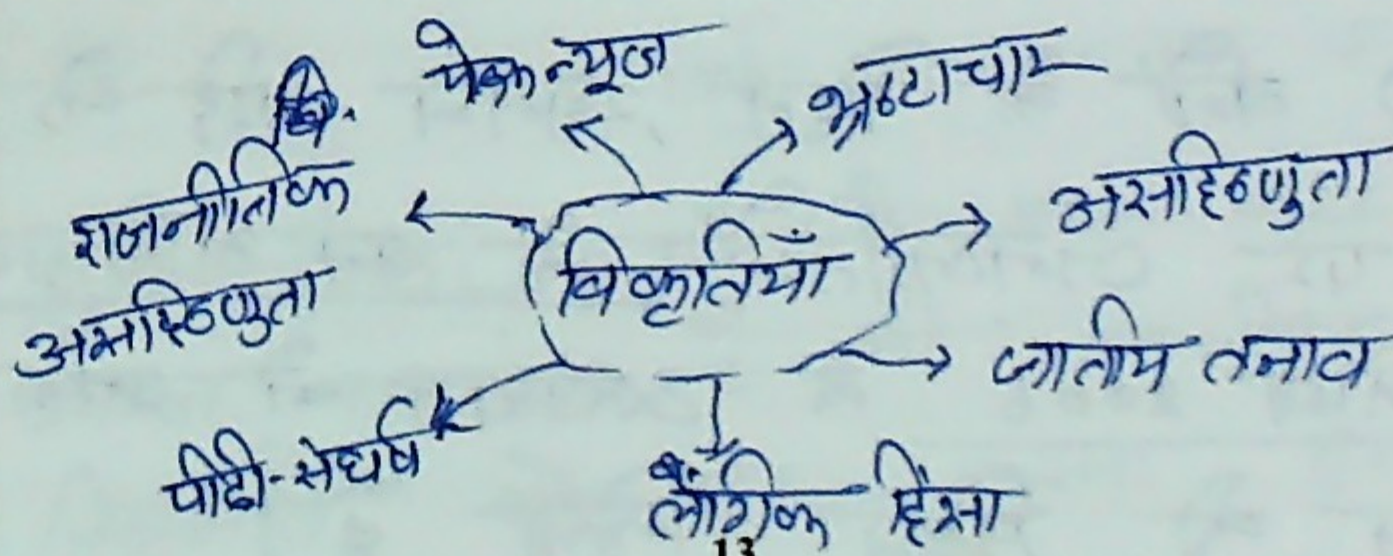 फेक न्यूज
भ्रष्टाचार
राजनीतिक
असहिष्णुता
असहिष्णुता
विकृतियाँ
जातीय तनाव
पीढी-संघर्ष
लैंगिक हिंसा
13